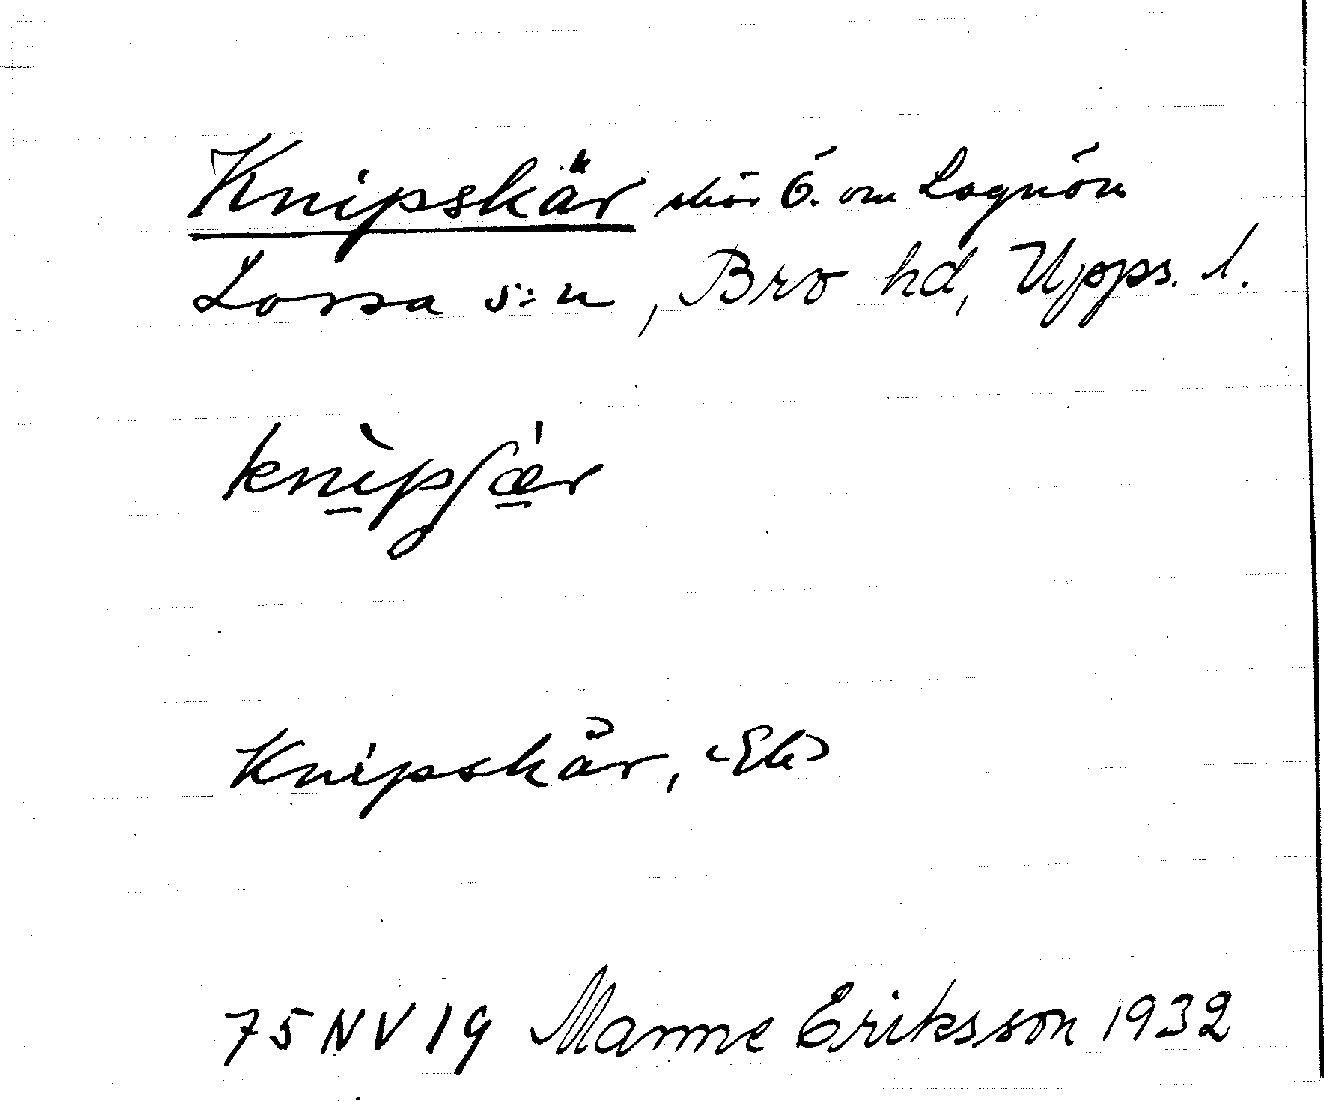 Knipskär skär Ö. om Lagnön
Lossa s:n, Bro hd, Upps. l.
knìpʃæ̀r
Knipskär, <Ek>
75 NV 19 Manne Eriksson 1932